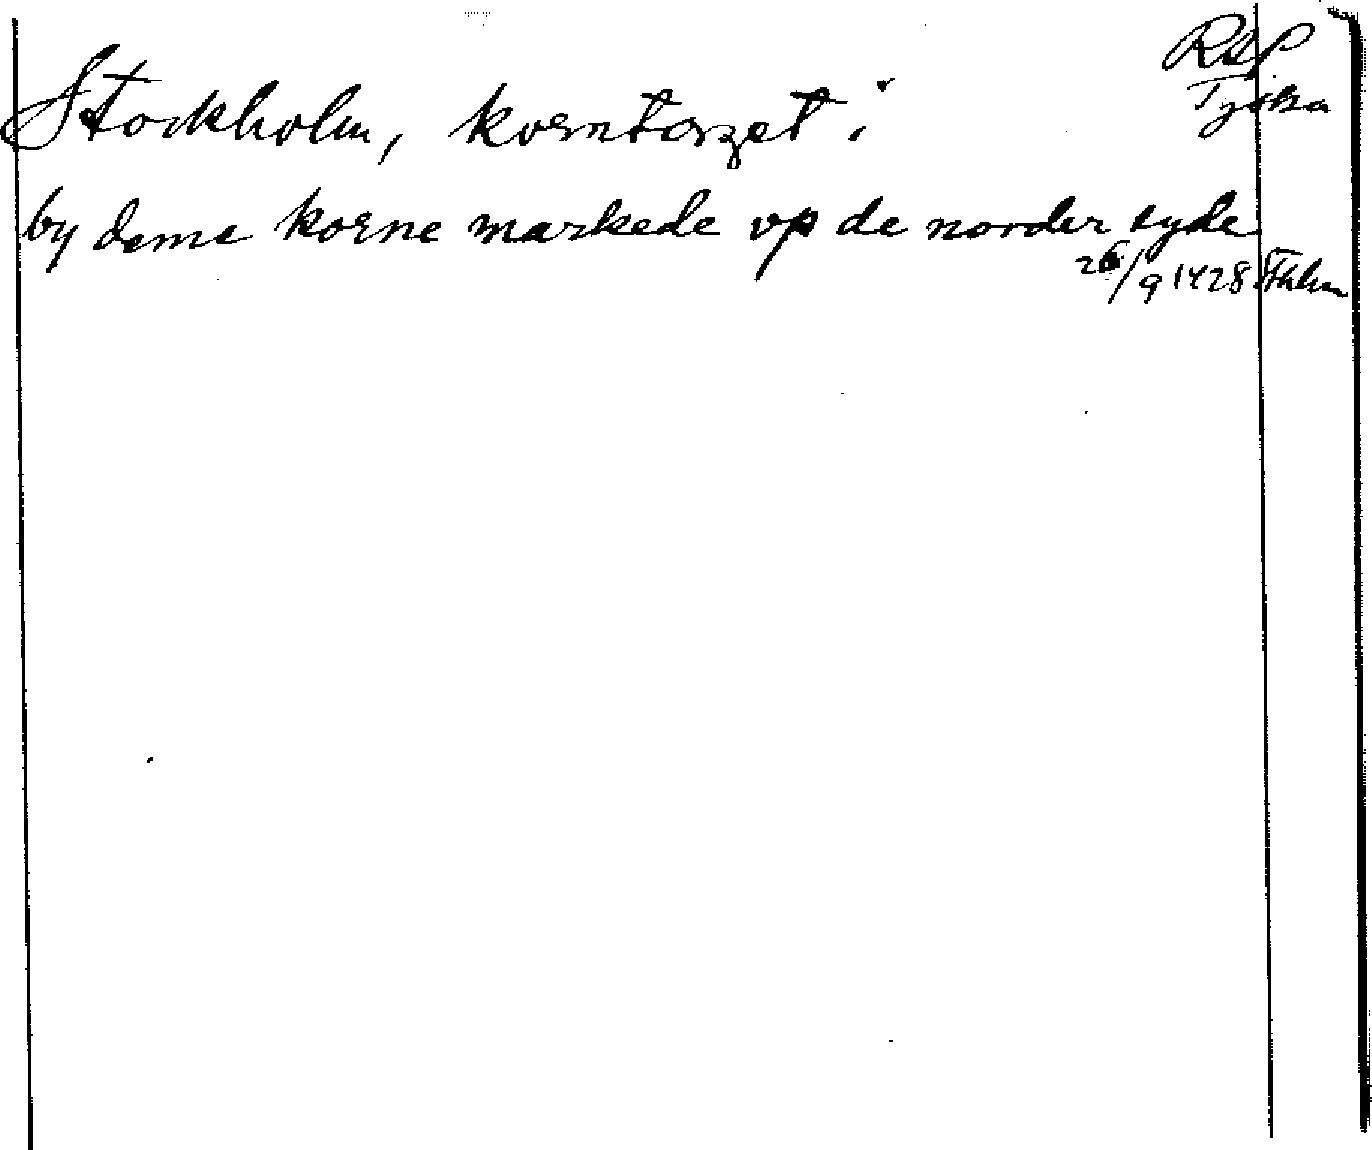 Stockholm, korntorget i
RAP
Tyska
by deme korne markede vp de norder syde
26/9 1428 Sthlm